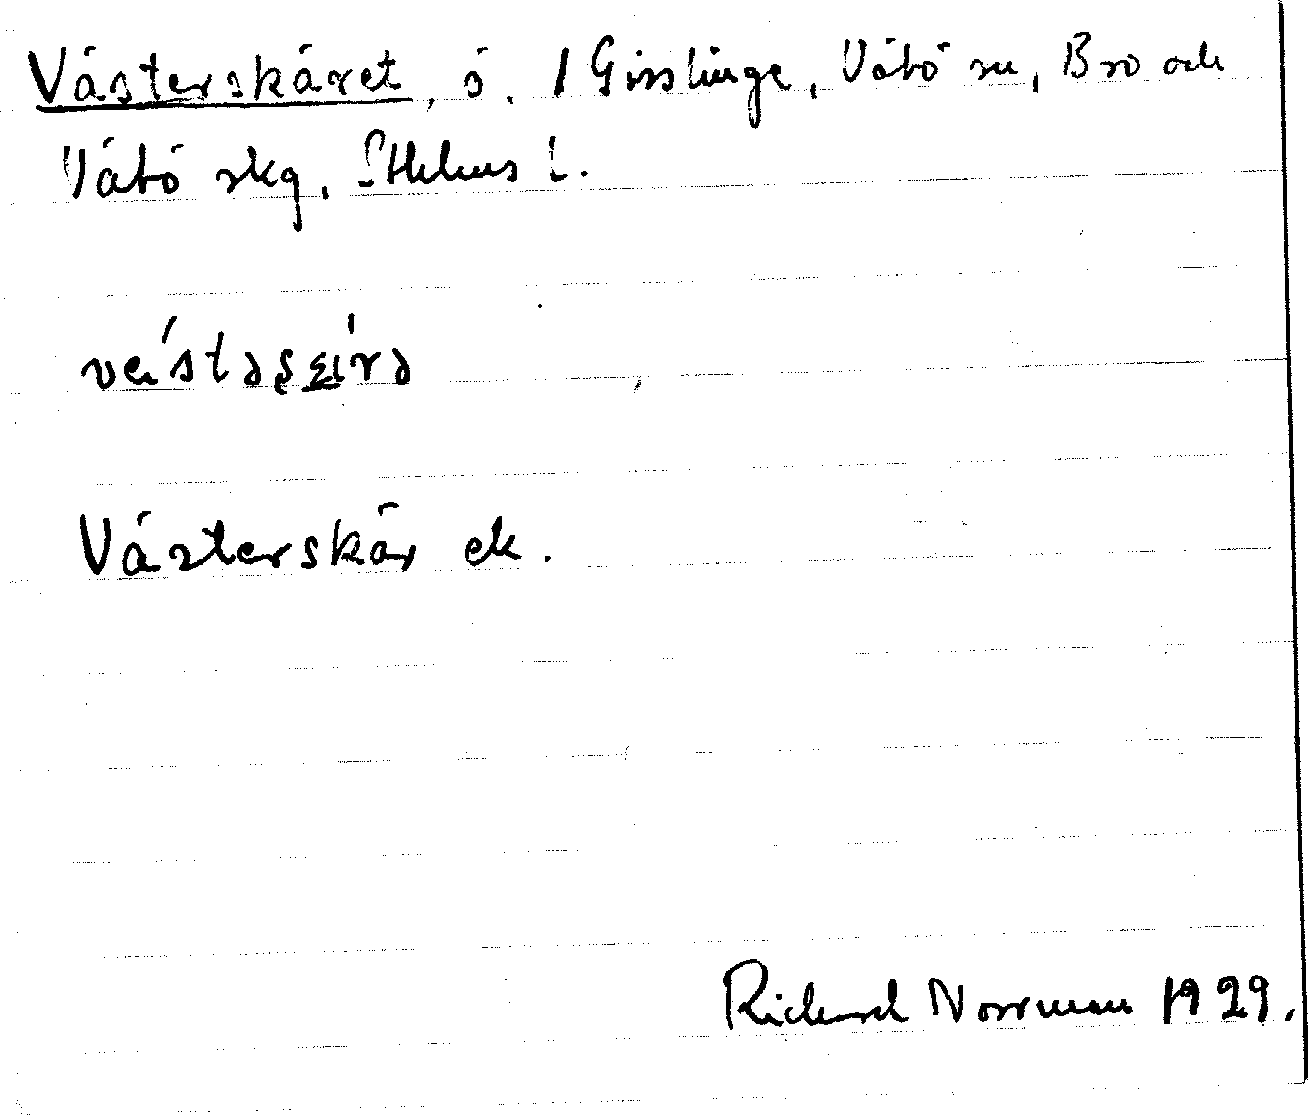 Västerskäret, ö. 1 Gisslinge, Vätö sn, Bro och
Vätö skg, Sthlms l.
Västerskär ek.
Richard Norrman 1929.